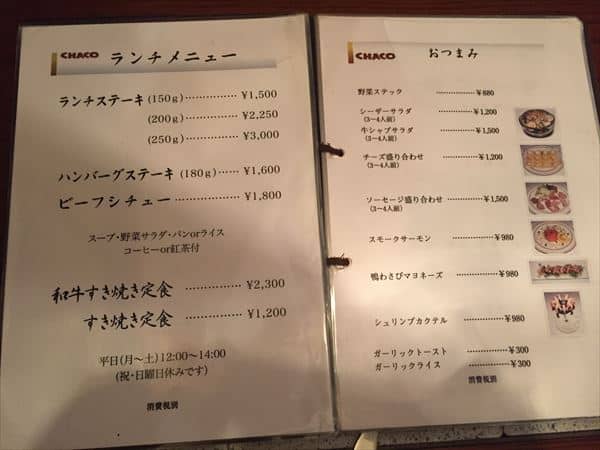 CHACO ランチメニュー
ランチステーキ(150g)……………¥1,500
(200g)……………¥2,250
(250g)……………¥3,000
ハンバーグステーキ(180g)……¥1,600
ビーフシチュー……………¥1,800
スープ・野菜サラダ・パンorライス
コーヒーor紅茶付
和牛すき焼き定食 ……………¥2,300
すき焼き定食 ……………¥1,200
平日(月〜土)12:00〜14:00
(祝・日曜日休みです)
消費税別
CHACO おつまみ
野菜ステック ……………¥880
シーザーサラダ ……………¥1,200
(3〜4人前)
牛シャブサラダ ……………¥1,500
(3〜4人前)
チーズ盛り合わせ ……………¥1,200
(3〜4人前)
ソーセージ盛り合わせ ……………¥1,500
(3〜4人前)
スモークサーモン ……………¥980
鴨わさびマヨネーズ ……………¥980
シュリンプカクテル ……………¥980
ガーリックトースト ……………¥300
ガーリックライス ……………¥300
消費税別